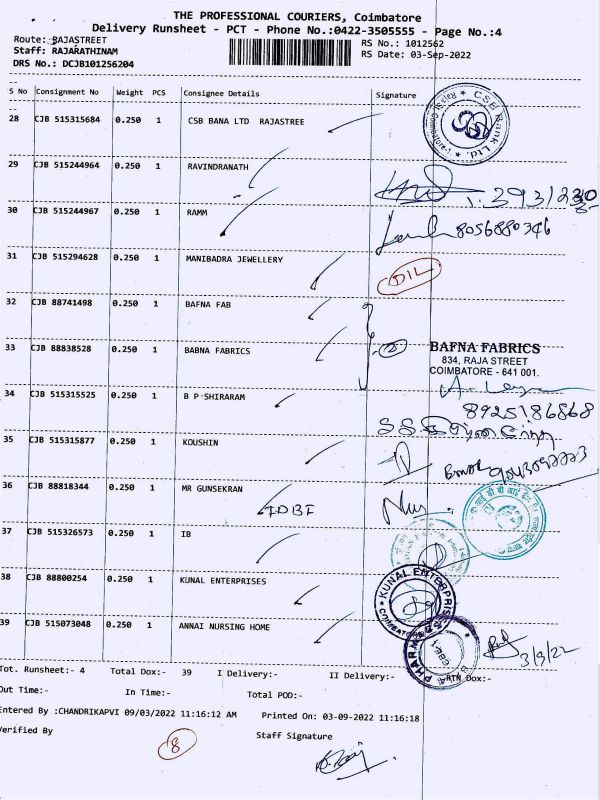 THE PROFESSIONAL COURIERS, Coimbatore
Delivery Runsheet - PCT - Phone No.:0422-3505555 - Page No.:4
Route: RAJASTREET
RS No.: 1012562
Staff: RAJARATHINAM
RS Date: 03-Sep-2022
DRS No.: DCJB101256204
S No Consignment No Weight PCS Consignee Details Signature
28 CJB 515315684 0.250 1 CSB BANA LTD RAJASTREE
CSB Bank Ltd.
29 CJB 515244964 0.250 1 RAVINDRANATH
30 CJB 515244967 0.250 1 RAMM
8056880346
31 CJB 515294628 0.250 1 MANIBADRA JEWELLERY
DIL
32 CJB 88741498 0.250 1 BAFNA FAB
33 CJB 88838528 0.250 1 BABNA FABRICS
BAFNA FABRICS
834, RAJA STREET
COIMBATORE - 641 001.
34 CJB 515315525 0.250 1 B P SHIRARAM
8925186868
35 CJB 515315877 0.250 1 KOUSHIN
36 CJB 88818344 0.250 1 MR GUNSEKRAN
IDBI
37 CJB 515326573 0.250 1 IB
38 CJB 88800254 0.250 1 KUNAL ENTERPRISES
KUNAL ENTERPRIS
COIMBATORE
39 CJB 515073048 0.250 1 ANNAI NURSING HOME
3/9/22
Tot. Runsheet:- 4 Total Dox:- 39 I Delivery:- II Delivery:- RTN Dox:-
Out Time:- In Time:- Total POD:-
Entered By :CHANDRIKAPVI 09/03/2022 11:16:12 AM Printed On: 03-09-2022 11:16:18
Verified By Staff Signature
8